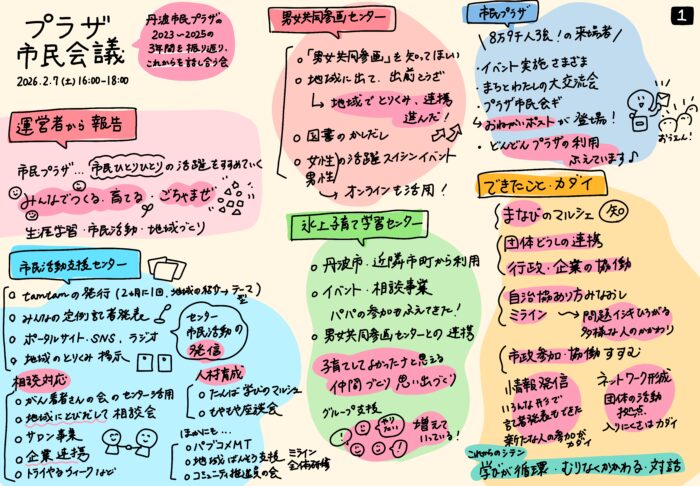 プラザ
市民会議
2026.2.7(土)16:00-18:00
丹波市民プラザの
2023〜2025の
3年間を振り返り、
これからを話し合う会
運営者から報告
市民プラザ…市民ひとりひとりの活躍をすすめていく
みんなでつくる・育てる・ごちゃまぜ
生涯学習・市民活動・地域づくり
市民活動支援センター
tamtamの発行(2ヶ月に1回、地域の紹介→テーマ型
みんなの定例記者発表
ポータルサイト、SNS、ラジオ
地域のとりくみ掲示
センター
市民活動の
発信
相談対応
がん患者さんの会のセンター活用
地域にとびだして相談会
サロン事業
企業連携
トライやるウィークなど
人材育成
たんば学びのマルシェ
もやもや座談会
ほかにも…
パブコメMT
地域ばんそう支援
コミュニティ推進員の会
ミライン
全体研修
男女共同参画センター
「男女共同参画」を知ってほしい
地域に出て、出前こうざ
↳地域でとりくみ、連携
進んだ!
図書のかしだし
女性
男性
の活躍スイシンイベント
→オンラインも活用!
氷上子育て学習センター
丹波市、近隣市町から利用
イベント・相談事業
パパの参加もふえてきた!
男女共同参画センターとの連携
子育てしてよかったナと思える
仲間づくり 思い出づくり
グループ支援
やりたい
増えて
いっている!
1
市民プラザ
8万9千人3名!の来場者
・イベント実施さまざま
・まちとわたしの大交流会
・プラザ市民会ギ
↳おねがいポストが登場!
・どんどんプラザの利用
ふえています♪
おうえん!
できたこと・カダイ
まなびのマルシェ 知
団体どうしの連携
行政・企業の協働
自治協あり方みなおし
ミライン→問題イシキひろがる
多様な人のかかわり
市政参加・協働 すすむ
情報発信
いろんな方々で
記者発表もできた
新たな人の参加がカダイ
ネットワーク形成
団体の活動
拠点
入りにくさはカダイ
これからのシテン
学びが循環・むりなくかかわる・対話